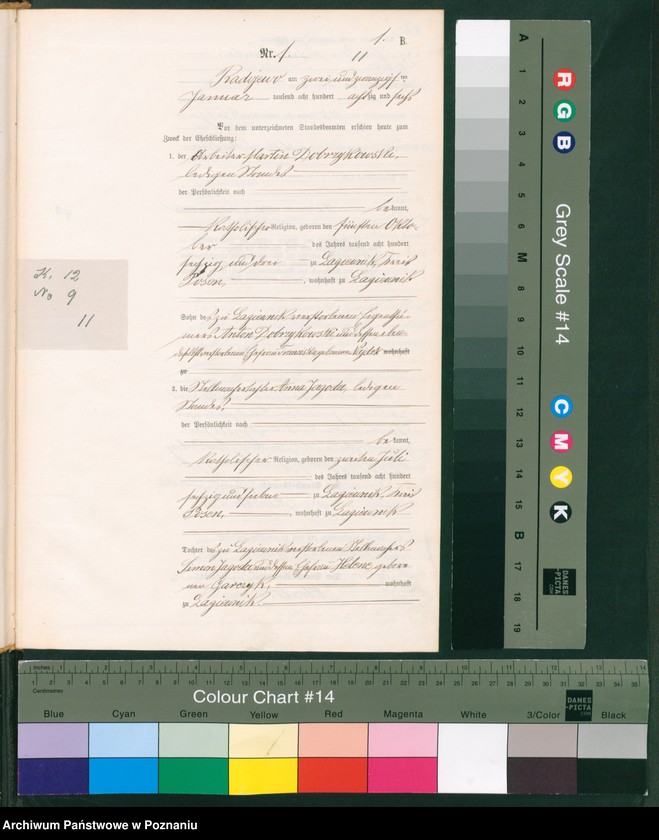 1. B.
Nr. 1. 11
Radojewo am zwei und zwanzigsten
Januar tausend acht hundert achtzig und sechs
Vor dem unterzeichneten Standesbeamten erschien heute zum
Zweck der Eheschließung:
1. der Arbeiter Martin Dobrzykowski,
ledigen Standes
der Persönlichkeit nach
bekannt,
katholischer Religion, geboren den fünften Okto-
ber des Jahres tausend acht hundert
sechzig und drei zu Lagiewnik, Kreis
Posen, wohnhaft zu Lagiewnik
Sohn des zu Lagiewnik verstorbenen
Anton Dobrzykowski und dessen eben-
daselbst verstorbenen Ehefrau geborenen wohnhaft
zu
2. die Anna Jagoda, ledigen
Standes,
der Persönlichkeit nach
bekannt,
katholischer Religion, geboren den zweiten Juli
des Jahres tausend acht hundert
sechzig und sieben zu Lagiewnik, Kreis
Posen, wohnhaft zu Lagiewnik
Tochter des zu Lagiewnik verstorbenen
Simon Jagoda und dessen Ehefrau Helene gebore-
nen Garczyk, wohnhaft
zu Lagiewnik.
K. 12
No 9
11
A 1 2 3 4 5 6 M 8 9 10 11 12 13 14 15 B 17 18 19
R G B
Grey Scale #14
C M Y K
DANES
-PICTA
Inches 1 2 3 4 5 6 7 8 9 10 11 12 13 14
Centimetres 1 2 3 4 5 6 7 8 9 10 11 12 13 14 15 16 17 18 19 20 21 22 23 24 25 26 27 28 29 30 31 32 33 34 35
Colour Chart #14
DANES
-PICTA
.COM
Blue Cyan Green Yellow Red Magenta White 3/Color Black
Archiwum Państwowe w Poznaniu